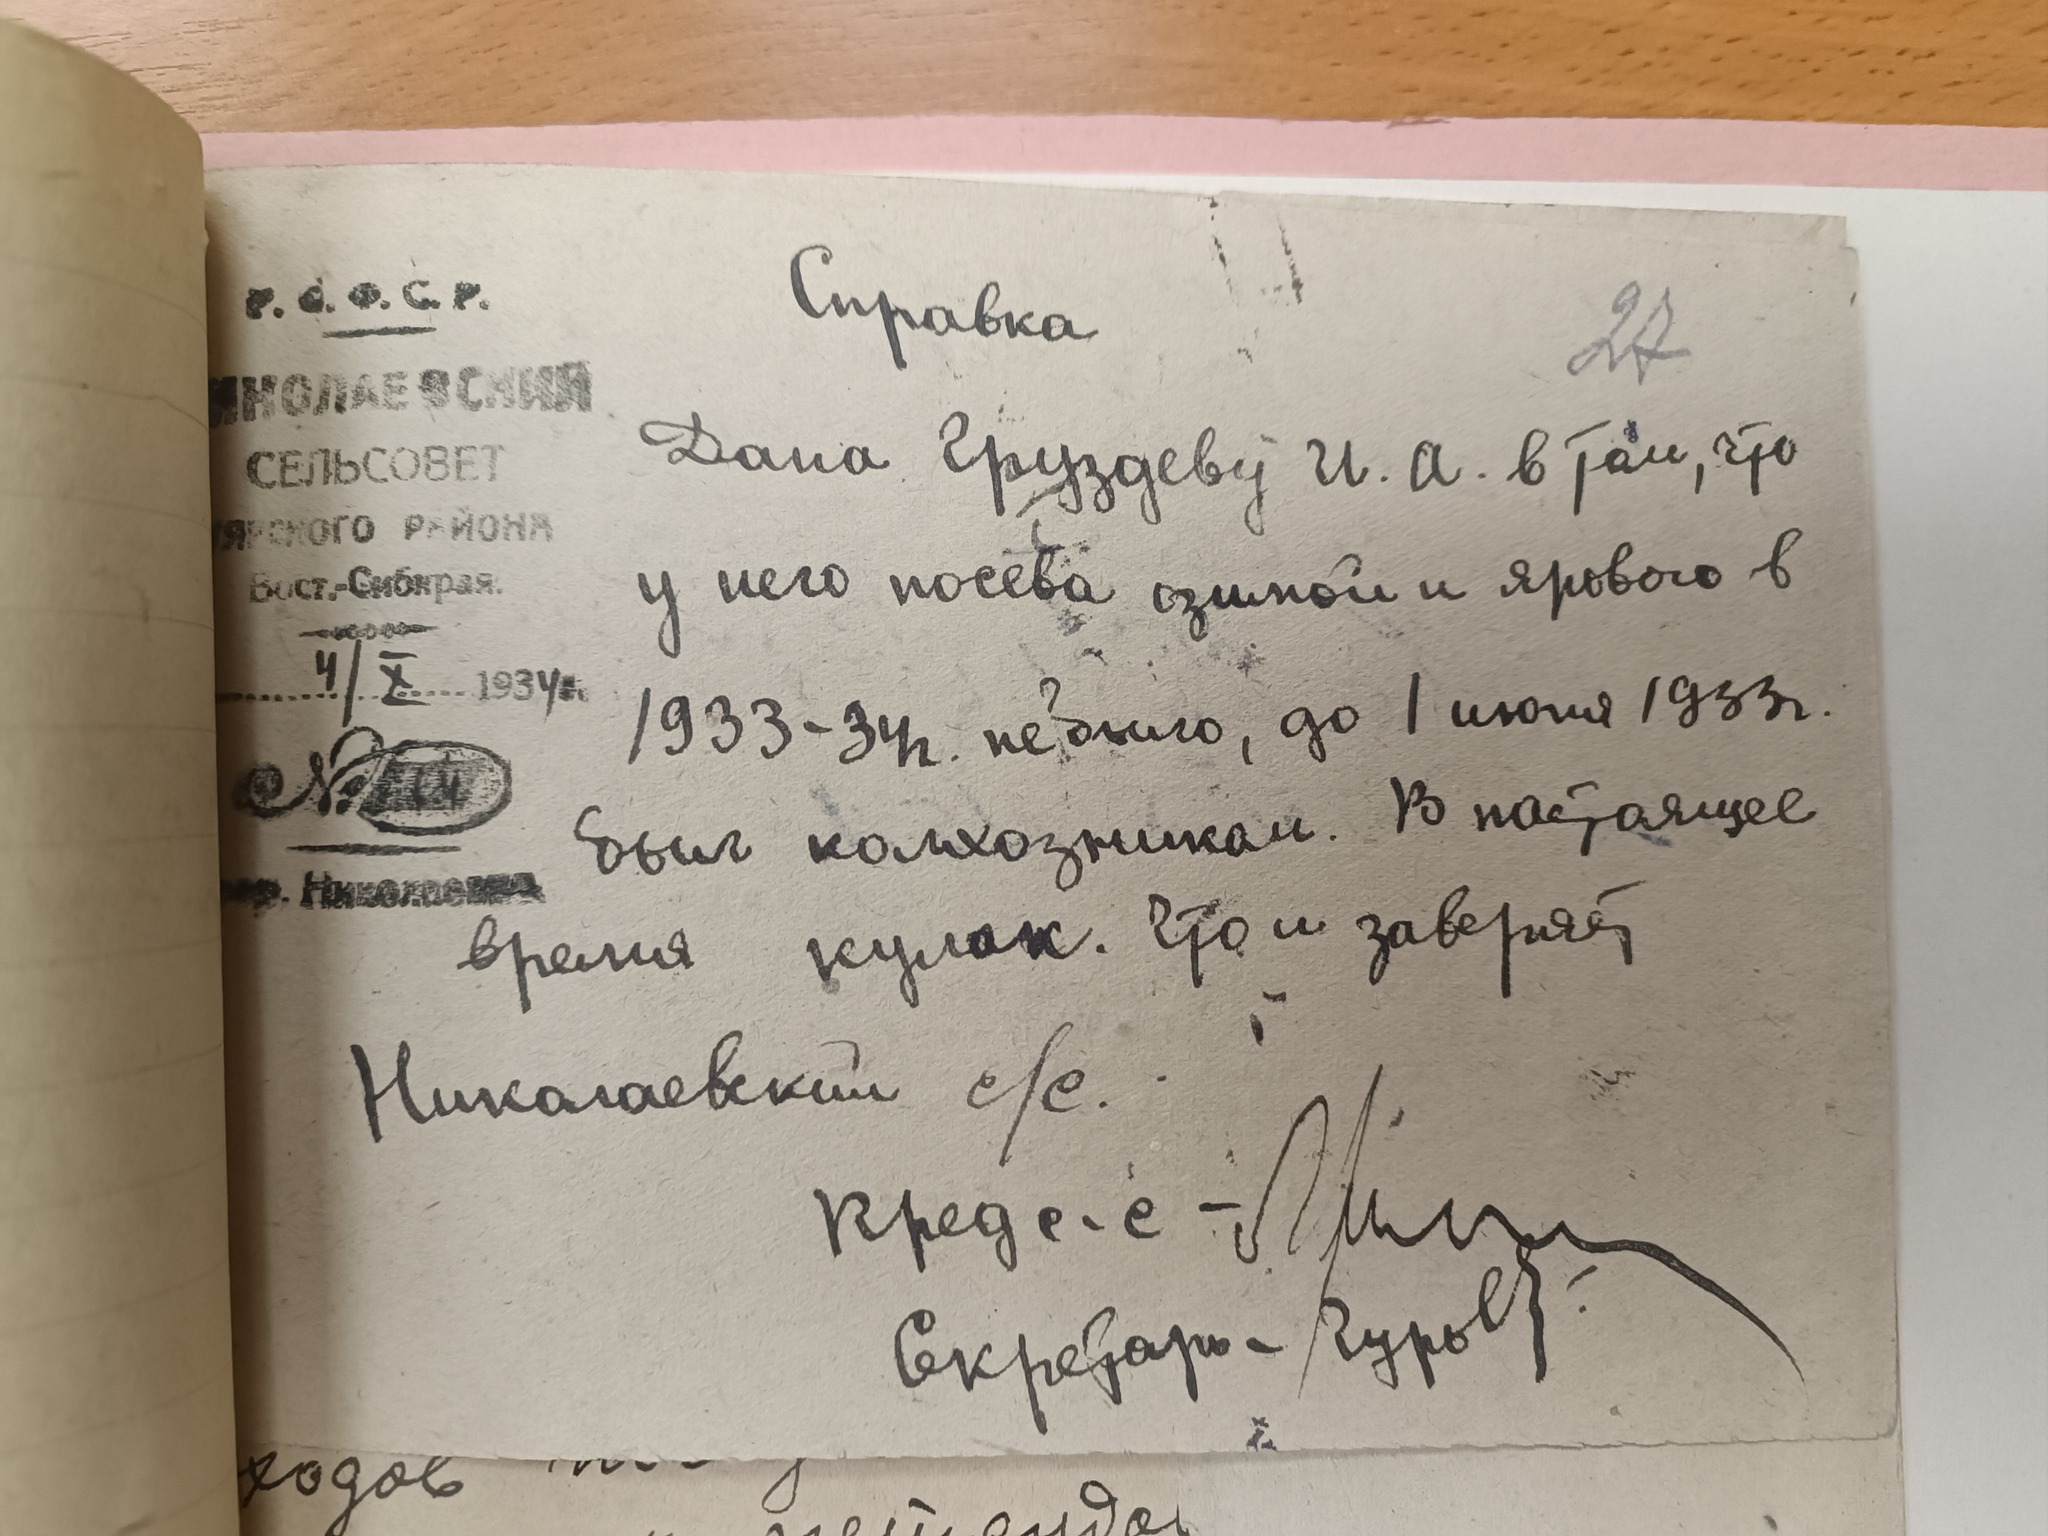 Р. С. Ф. С. Р.
ИКОЛАЕВСКИЙ
СЕЛЬСОВЕТ
ЯРСКОГО РАЙОНА
Вост.-Сибкрая.
4/X 1934г.
№ 14
Николаевка
Справка
27
Дана Груздеву И. А. в том, что
у него посева озимой и ярового в
1933-34г. не было, до 1 июня 1933г.
был колхозником. В настаящее
время кулак. Что и заверяет
Николаевский с/с.
Пред с-с -
Секретарь - Гуров
ходов